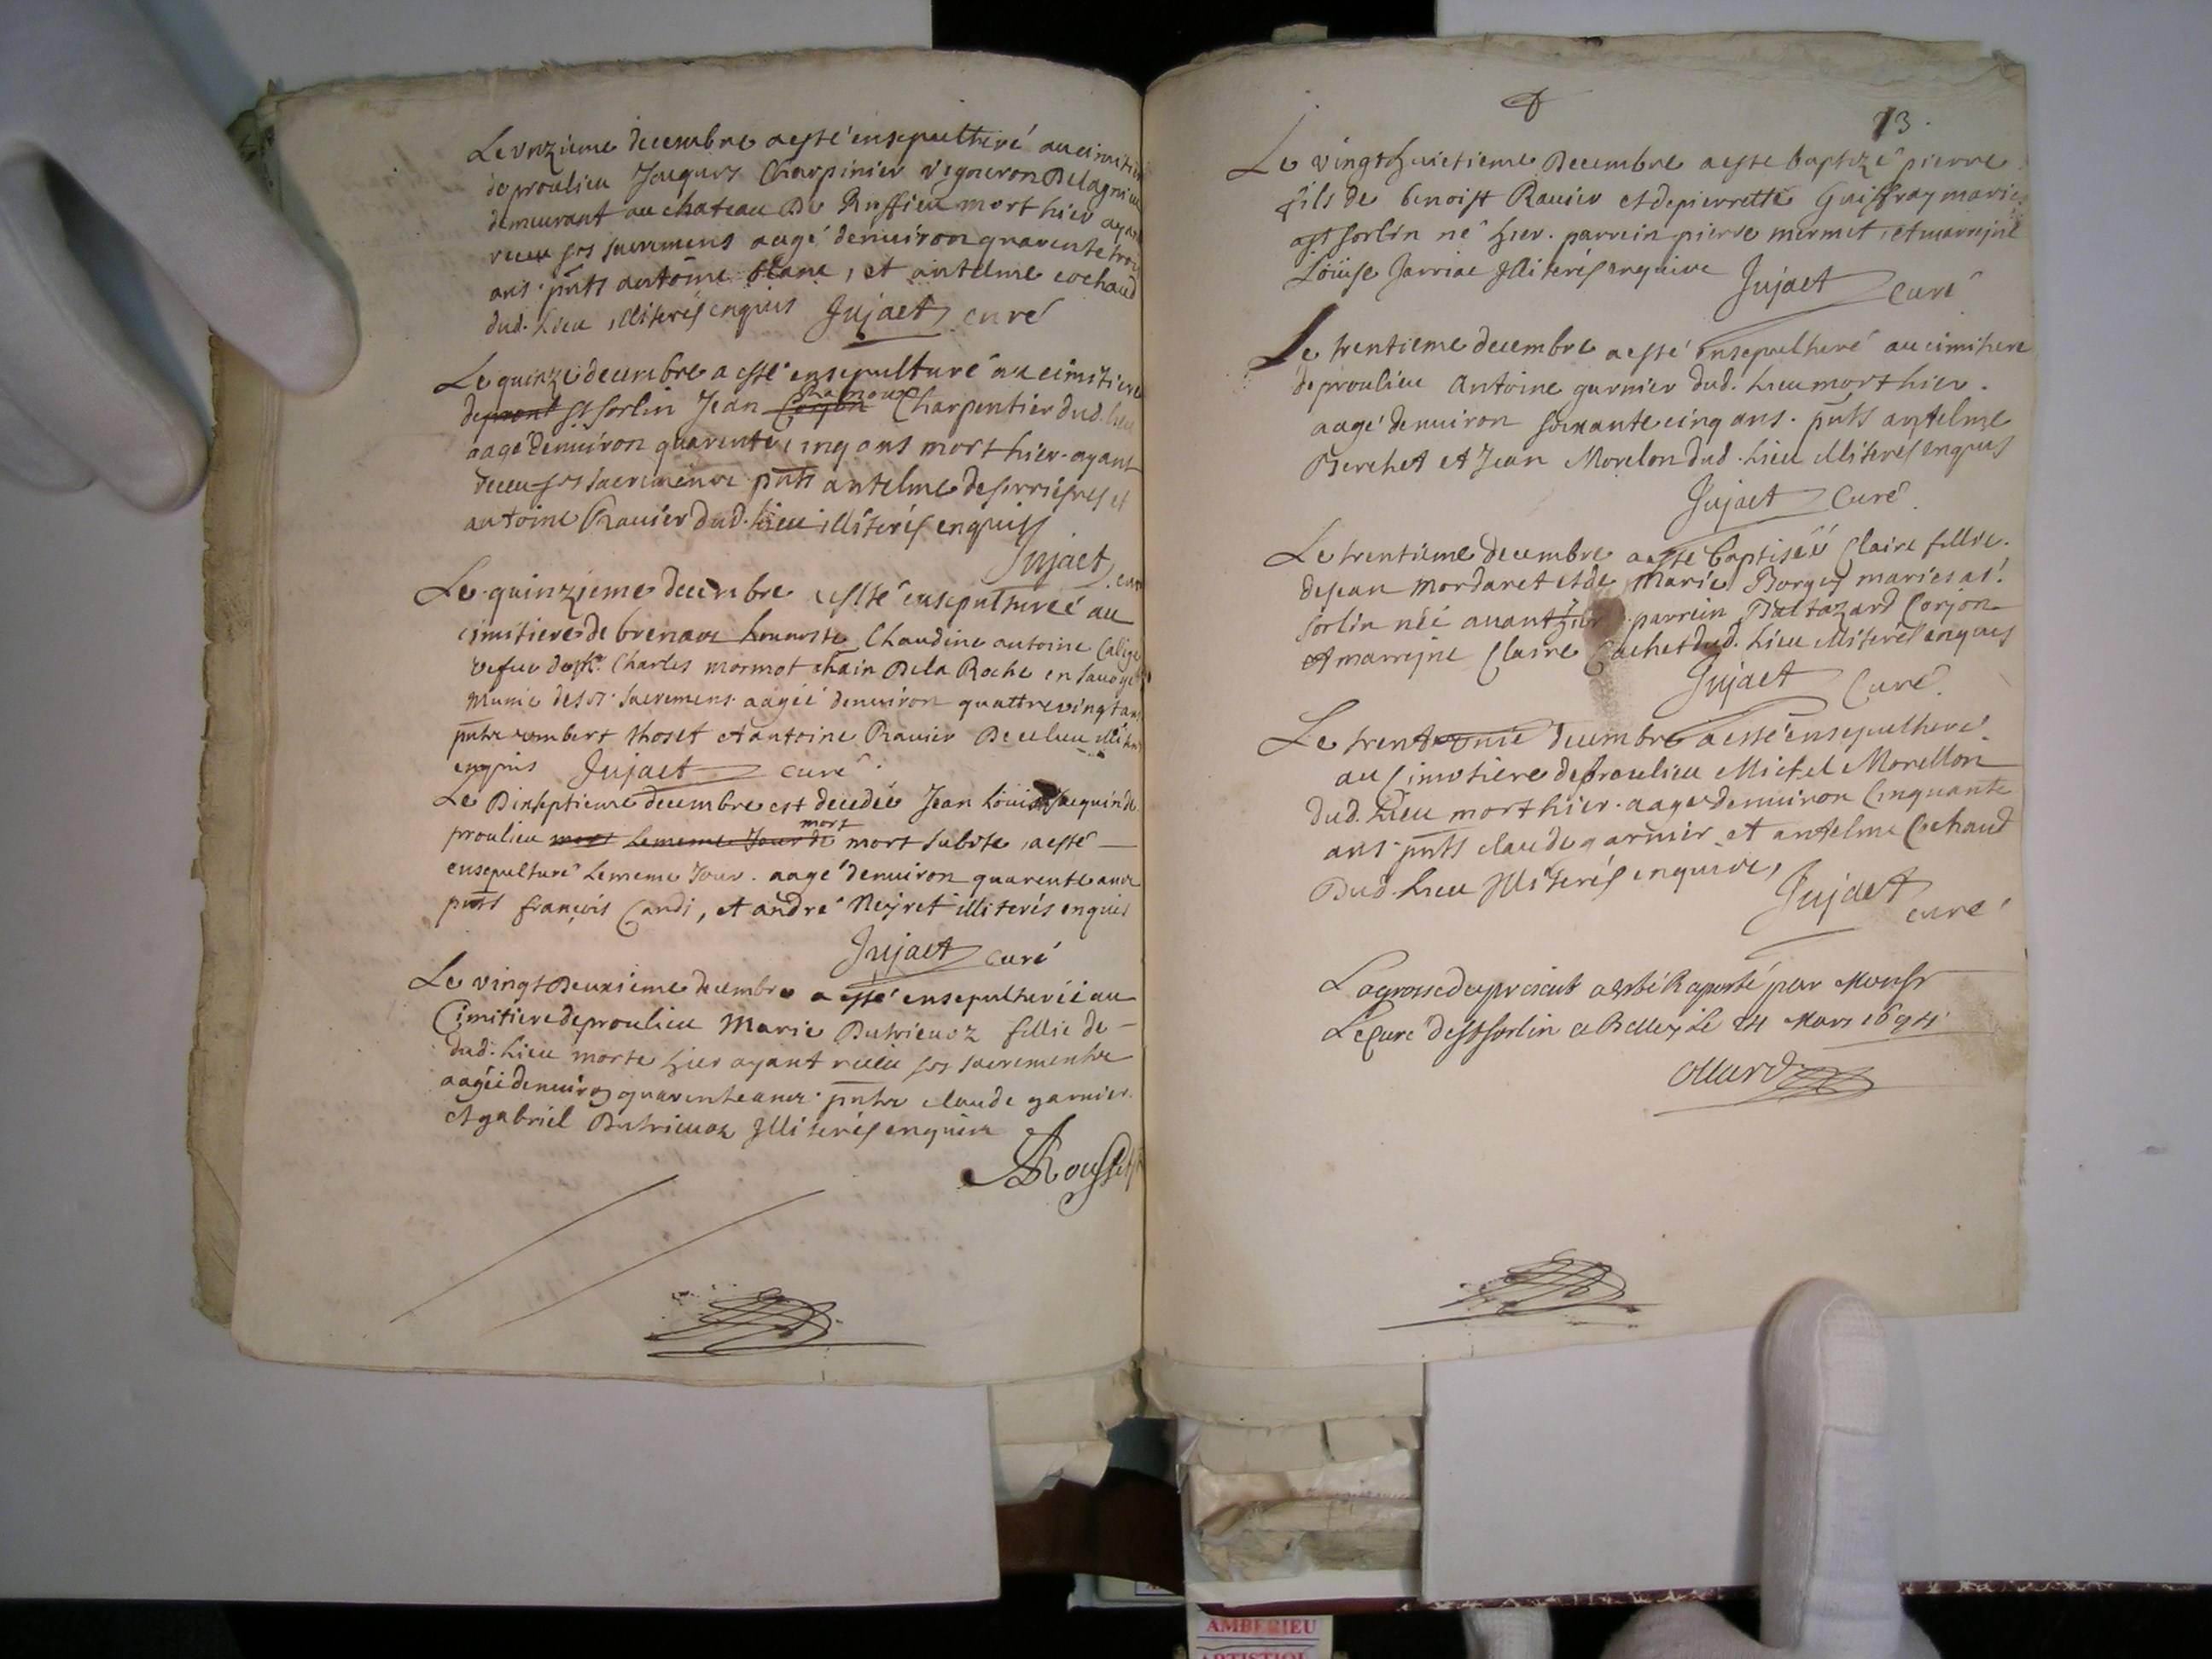 Le unzieme decembre a esté ensepulturé au cimitie
de proulieu Jacques Charpinier vigneron De lagnieu
demeurant au chateau De Ruffieu mort hier ayant
receu ses sacremens aagé denuiron quarente trois
ans pnts antoine blanc, et antelme cochaud
dud. Lieu illiterés enquis Jujaet curé
Le quinze decembre a esté ensepulturé au cimitiere
de prout st sorlin Jean Corjon Charpentier dud. lieu
Ramoux
aagé denuiron quarente cinq ans mort hier ayant
receu ses sacremens pnts antelme desarriesres et
antoine Rauier dud. Lieu illiterés enquiss
Jujaet cur
Le quinzieme decembre a esté ensepulturéé au
cimitiere de brenaux honneste Claudine antoine
vefue de Charles mormot De la Roche en sauoye
munie de ses sacremens aagéé denuiron quattrevingt ans
pnts umbert thoset et antoine Rauier De ce lieu
enquis Jujaet curé
Le Dixseptieme decembre est decedéé Jean Loüis Jacquin de
proulieu mort Le meme Jour de mort subite, a esté
mort
ensepulturé Le meme Jour. aagé denuiron quarente ans
pnts françois Cardi, et andré Neyret illiterés enquis
Jujaet curé
Le vingt Deuxieme decembre a esté ensepulturéé au
Cimitiere de proulieu Marie Dutrieuoz fillie de
dud. Lieu morte hier ayant receu ses sacrements
aagéé denuiron quarente ans pnts claude garnier
et gabriel Dutrieuoz Illiterés enquis
Rousset
13.
Le vingt huictieme Decembre a esté baptizé pierre
fils de benoist Rauier et de pierrette Guiffray maries
a st sorlin né hier. parrein pierre mermet, et marrejne
Loüise Jarriae Illiterés enquis Jujaet curé
Le trentieme decembre a esté ensepulturé au cimitiere
de proulieu Antoine garnier dud. Lieu mort hier.
aagé denuiron soixante cinq ans. pnts antelme
Berchet et Jean Morelon dud. Lieu illiterés enquis
Jujaet Curé
Le trentieme decembre a esté baptiséé Claire fillie
de Jean mordaret et de Marie Borget maries a st
sorlin néé auant hier parrein Baltazard Corjon
et marrejne Claire Cachet dud. Lieu illiterés enquis
Jujaet Curé
Le trente unie decembre a esté ensepulturé
au Cimitiere de proulieu Michel Morellon
dud. Lieu mort hier. aagé denuiron Cinquante
ans pnts claude garnier et antelme Cochaud
Dud. Lieu Illiterés enquis,
Jujaet curé
La grosse du present a esté Raporté par Monsr
Le Curé de st sorlin a Belley Le 24 Mars 1694
AMBERIEU